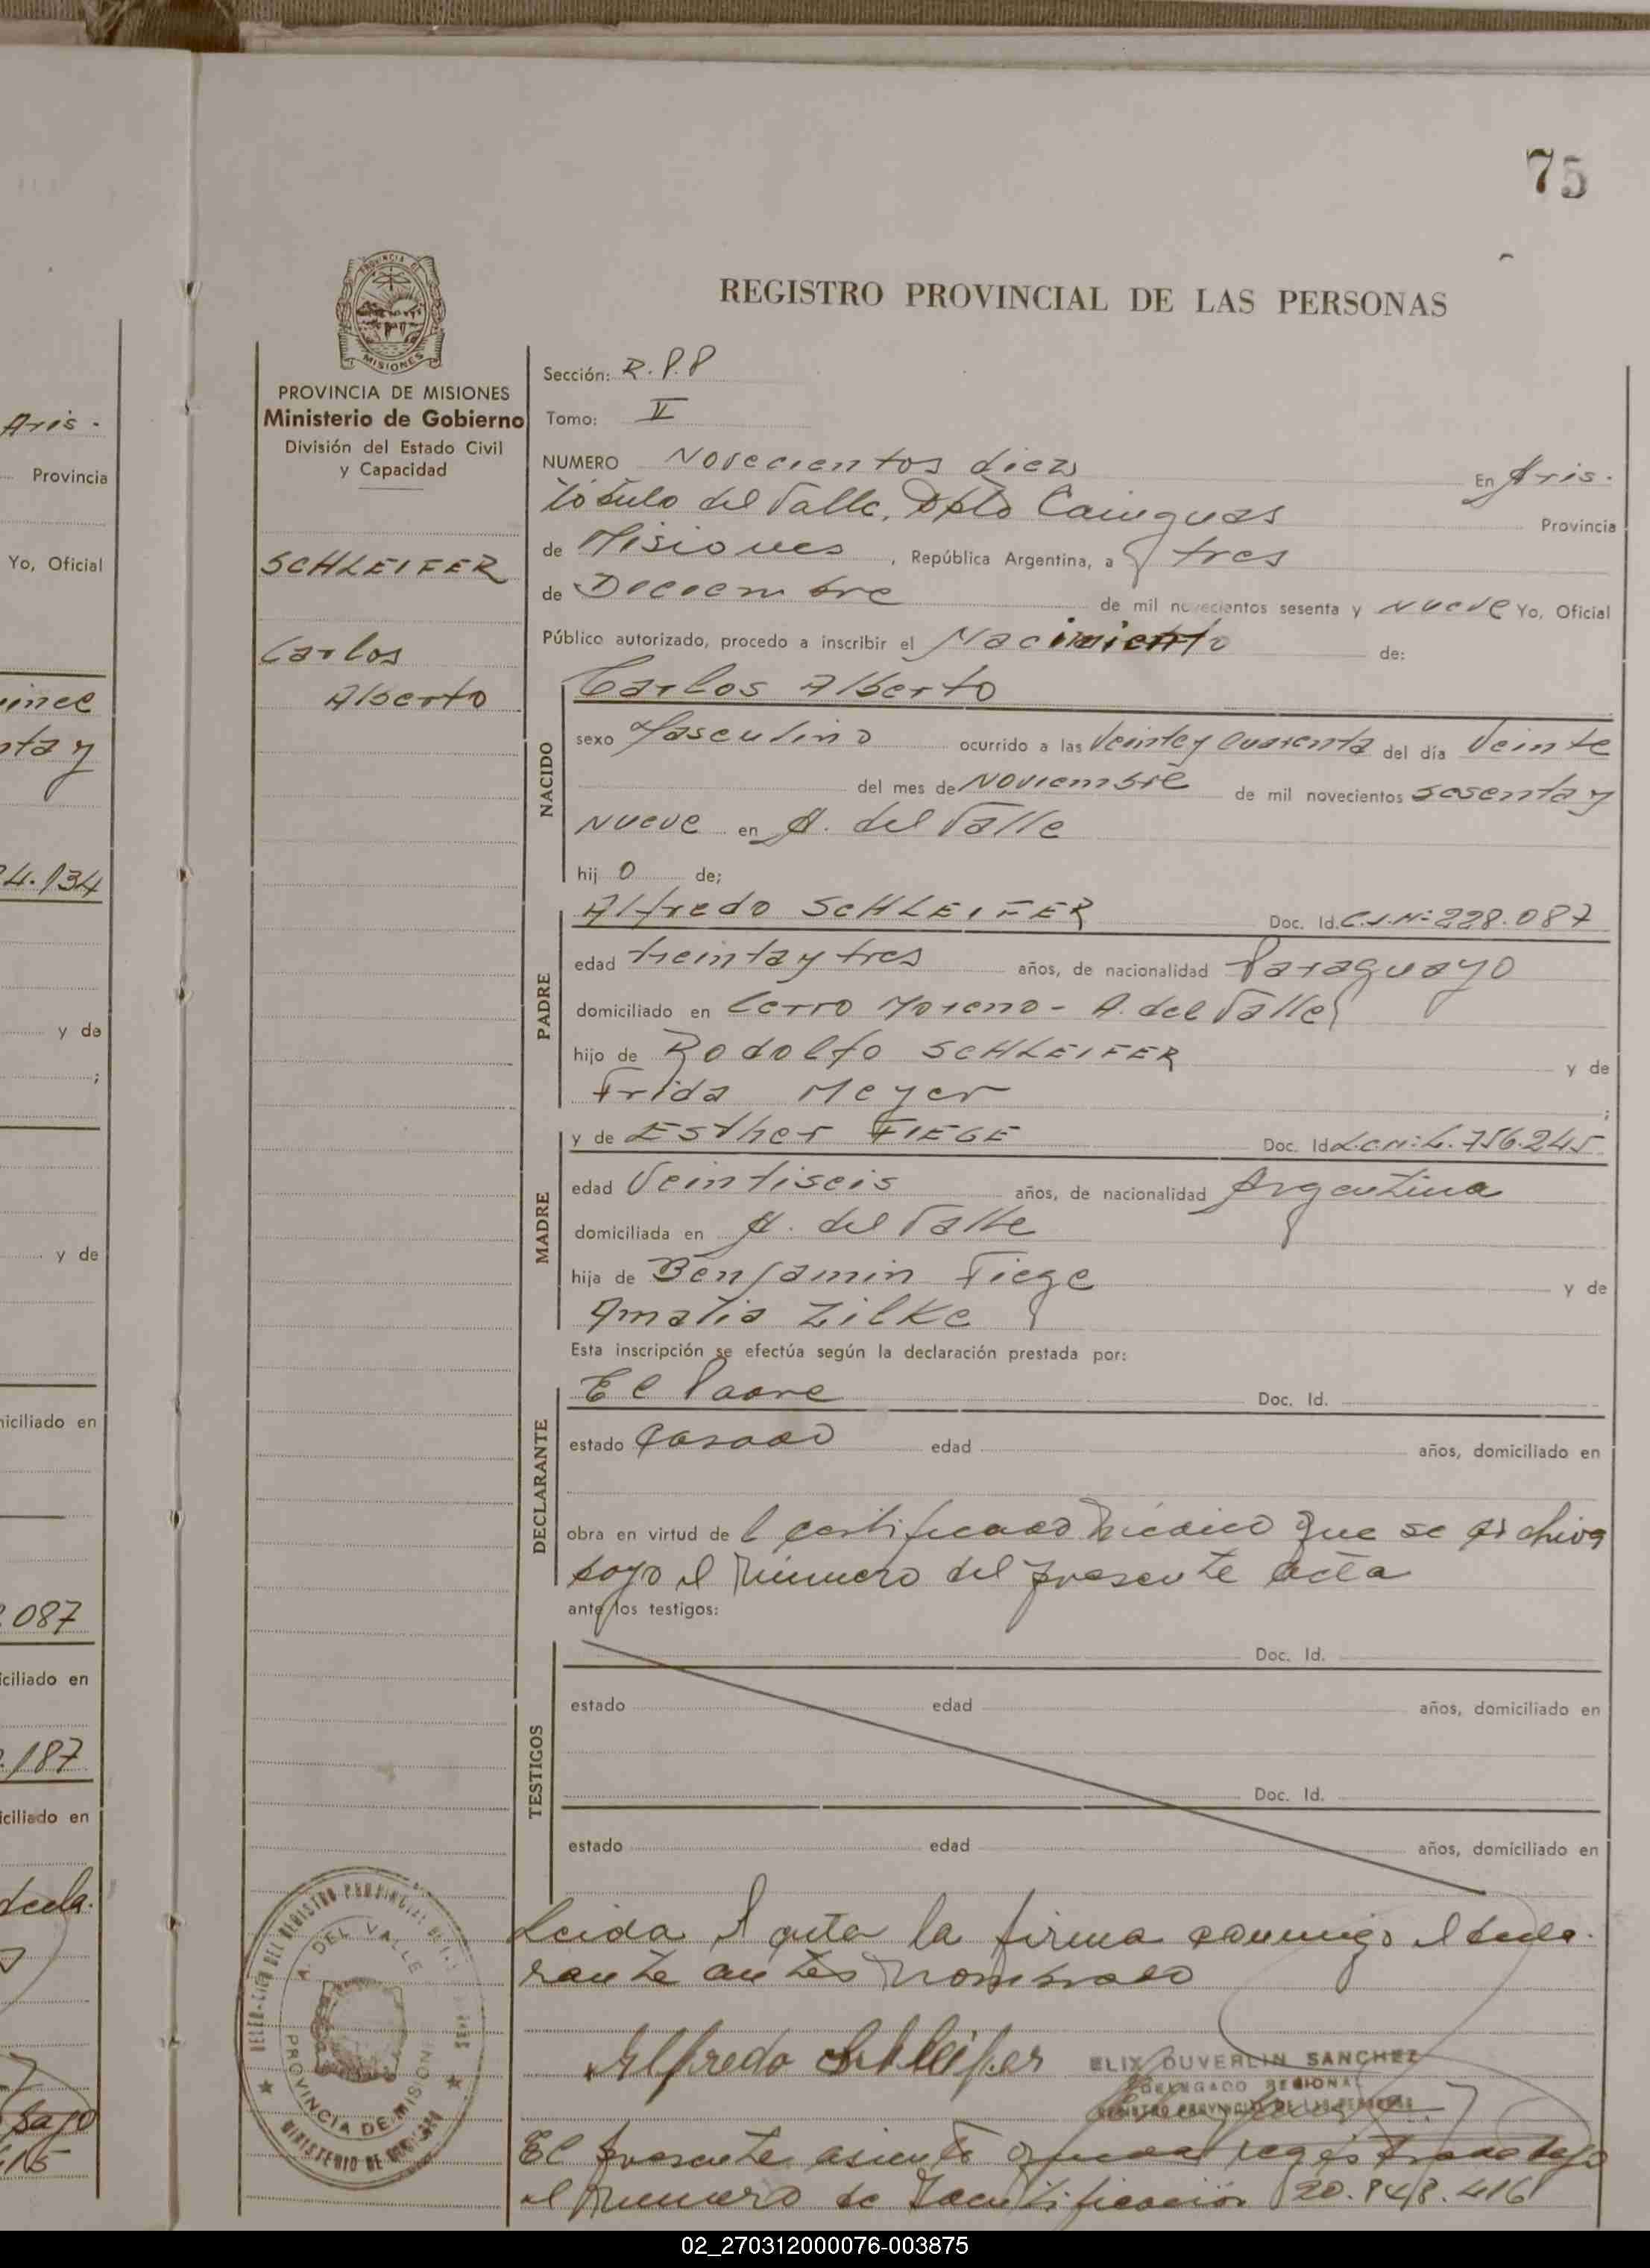 75
REGISTRO PROVINCIAL DE LAS PERSONAS
PROVINCIA DE MISIONES
PROVINCIA DE MISIONES
Ministerio de Gobierno
División del Estado Civil
y Capacidad
SCHLEIFER
Carlos
Alberto
Sección: R.P.P
Tomo: II
NUMERO Novecientos diez En Aris-
tóbulo del Valle, Dpto Cainguas Provincia
de Misiones, República Argentina, a tres
de Diciembre de mil novecientos sesenta y nueve Yo, Oficial
Público autorizado, procedo a inscribir el Nacimiento de:
NACIDO
Carlos Alberto
sexo Masculino ocurrido a las Veinte y cuarenta del día Veinte
del mes de Noviembre de mil novecientos sesenta y
Nueve en A. del Valle
hij o de;
PADRE
Alfredo SCHLEIFER Doc. Id. C.I.Nº 228.087
edad treinta y tres años, de nacionalidad Paraguayo
domiciliado en Cerro Moreno - A. del Valle
hijo de Rodolfo SCHLEIFER y de
Frida Meyer ;
MADRE
y de Esther FIEGE Doc. Id L.C.Nº 4.756.245
edad Veintiseis años, de nacionalidad Argentina
domiciliada en A. del Valle
hija de Benjamin Fiege y de
Amalia Zilke
Esta inscripción se efectúa según la declaración prestada por:
DECLARANTE
El Padre Doc. Id.
estado Casado edad años, domiciliado en
obra en virtud de l certificado médico que se archiva
bajo el número del presente acta
ante los testigos:
TESTIGOS
Doc. Id.
estado edad años, domiciliado en
Doc. Id.
estado edad años, domiciliado en
Leida el acta la firma conmigo el decla-
rante antes nombrado
Alfredo Schleifer
ELIX DUVERLIN SANCHEZ
DELEGADO REGIONAL
REGISTRO PROVINCIAL DE LAS PERSONAS
A. DEL VALLE
PROVINCIA DE MISIONES
MINISTERIO DE GOBIERNO
El presente asiento queda registrado bajo
el número de Identificación 20.848.416
Aris-
Provincia
Yo, Oficial
4.134
y de
;
y de
niciliado en
087
iciliado en
.187
iciliado en
decla-
bajo
415
02_270312000076-003875